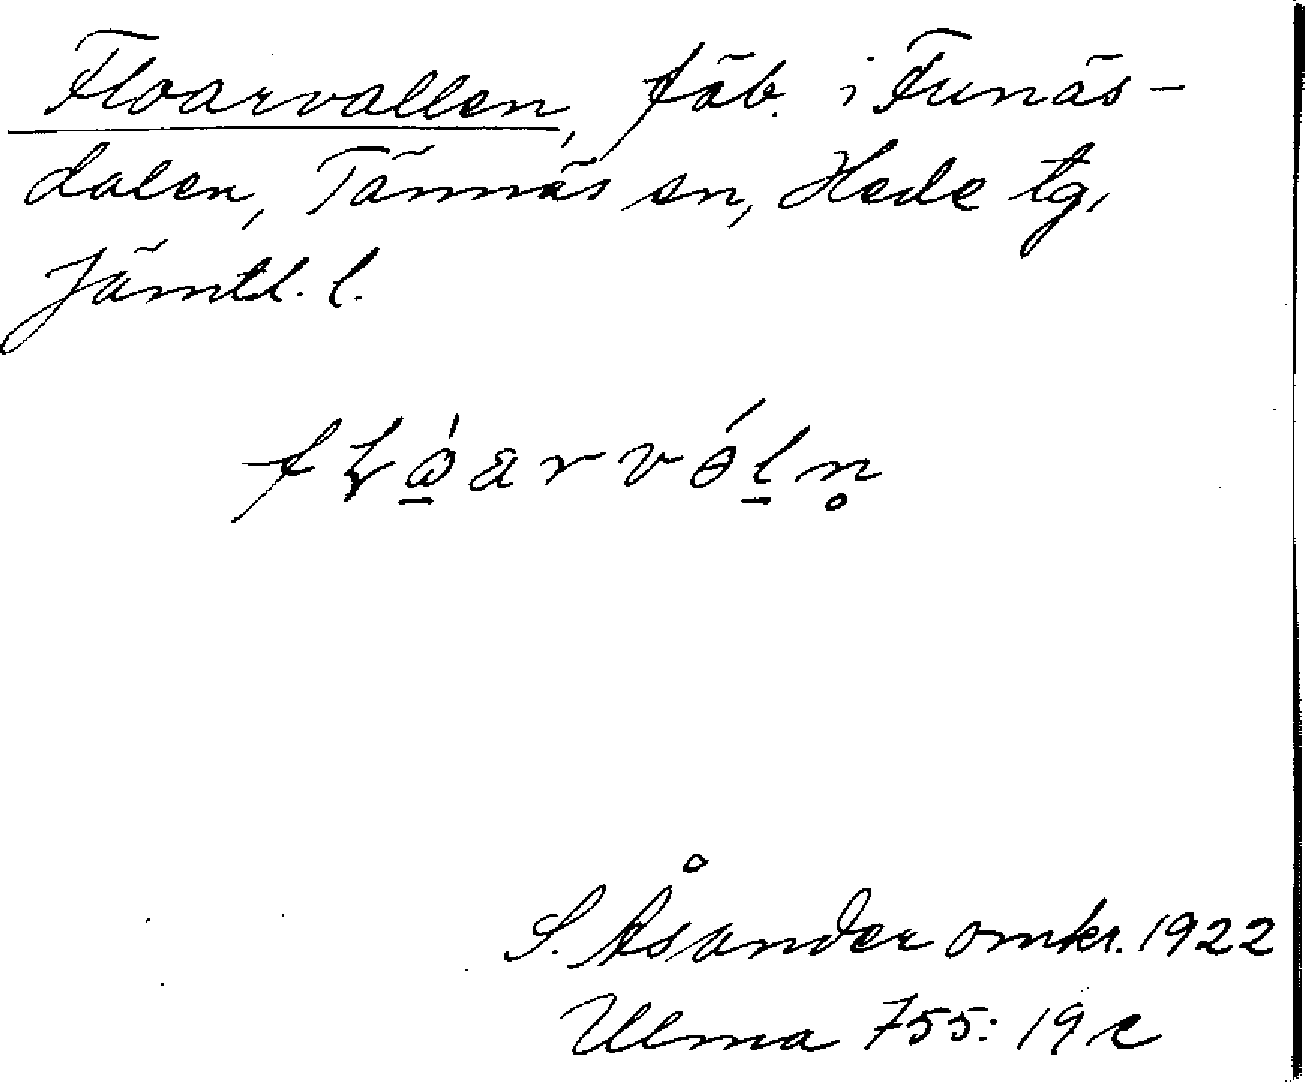 Floarvallen, fäb. i Funäs-
dalen, Tännäs sn, Hede tg,
Jämtl. l.
S. Åsander omkr. 1922
Ulma 755: 19 c